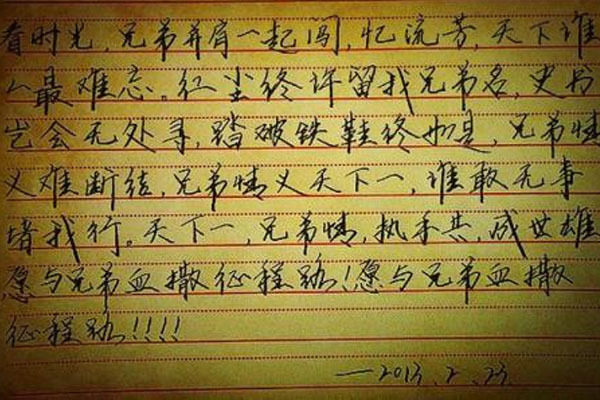 看时光,兄弟并肩一起闯,忆流芳,天下谁
人最难忘。红尘终许留我兄弟名,史书
岂会无处寻,踏破铁鞋终如是,兄弟情
义难断结,兄弟情义天下一,谁敢无事
堵我行。天下一,兄弟情,执手共,成世雄
愿与兄弟血撒征程路!愿与兄弟血撒
征程路!!!!
——2013.2.23